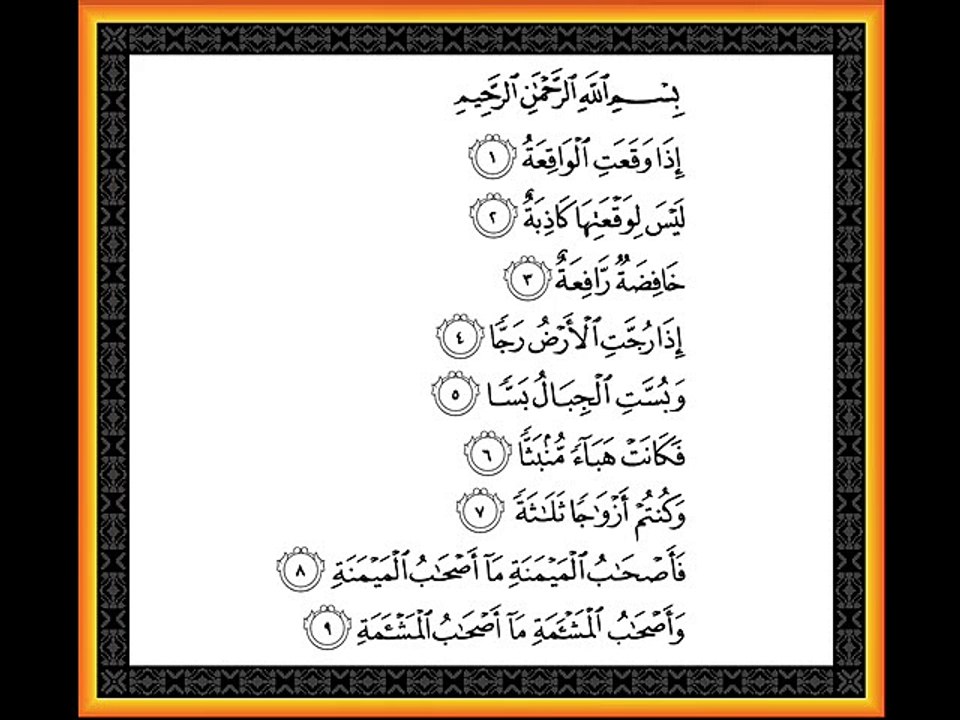 بِسْمِ ٱللَّهِ ٱلرَّحْمَٰنِ ٱلرَّحِيمِ
إِذَا وَقَعَتِ ٱلْوَاقِعَةُ ١
لَيْسَ لِوَقْعَتِهَا كَاذِبَةٌ ٢
خَافِضَةٌ رَّافِعَةٌ ٣
إِذَا رُجَّتِ ٱلْأَرْضُ رَجًّا ٤
وَبُسَّتِ ٱلْجِبَالُ بَسًّا ٥
فَكَانَتْ هَبَآءً مُّنۢبَثًّا ٦
وَكُنتُمْ أَزْوَٰجًا ثَلَٰثَةً ٧
فَأَصْحَٰبُ ٱلْمَيْمَنَةِ مَآ أَصْحَٰبُ ٱلْمَيْمَنَةِ ٨
وَأَصْحَٰبُ ٱلْمَشْـَٔمَةِ مَآ أَصْحَٰبُ ٱلْمَشْـَٔمَةِ ٩